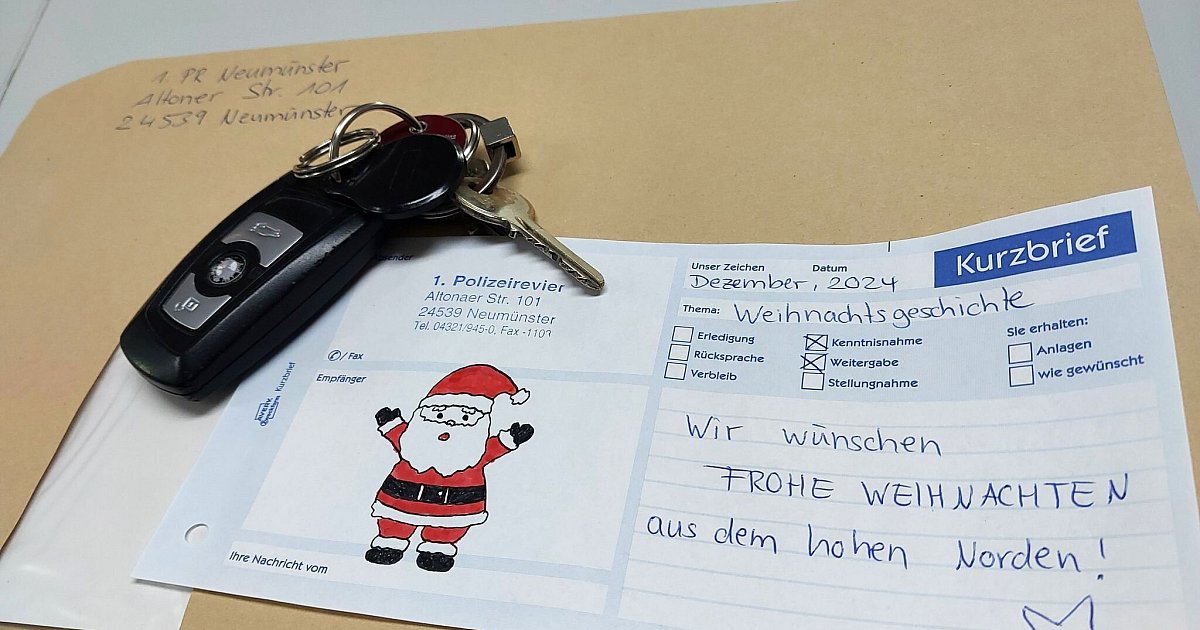 1. PR Neumünster
Altoner Str. 101
24539 Neumünster
Kurzbrief
Absender
1. Polizeirevier
Altonaer Str. 101
24539 Neumünster
Tel. 04321/945-0, Fax -1109
/ Fax
Empfänger
Ihre Nachricht vom
Kurzbrief
Unser Zeichen Datum
Dezember, 2024
Thema: Weihnachtsgeschichte
Erledigung
Rücksprache
Verbleib
Kenntnisnahme
Weitergabe
Stellungnahme
Sie erhalten:
Anlagen
wie gewünscht
Wir wünschen
FROHE WEIHNACHTEN
aus dem hohen Norden!